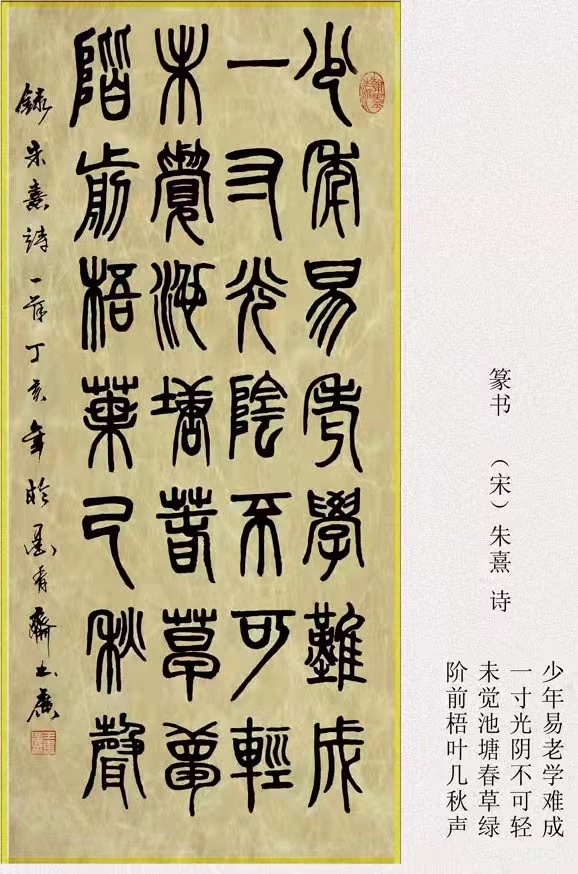 少年易老學難成
一寸光陰不可輕
未覺池塘春草夢
階前梧葉已秋聲
錄朱熹詩一首丁亥年於
篆书 （宋）朱熹 诗
少年易老学难成
一寸光阴不可轻
未觉池塘春草绿
阶前梧叶几秋声